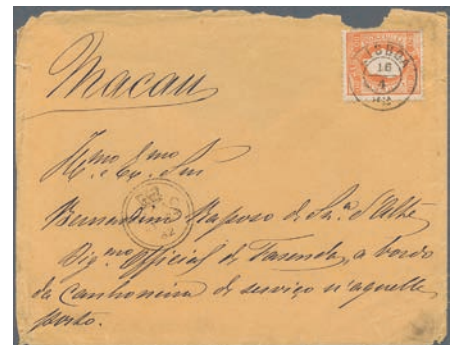 Macau
LISBOA
16
4
Illmo e Exmo Snr
Bernardino Raposo de Sá d'Alte
Dig.mo Official de Fazenda, a bordo
da Canhoneira de serviço n'aquelle
porto.
82